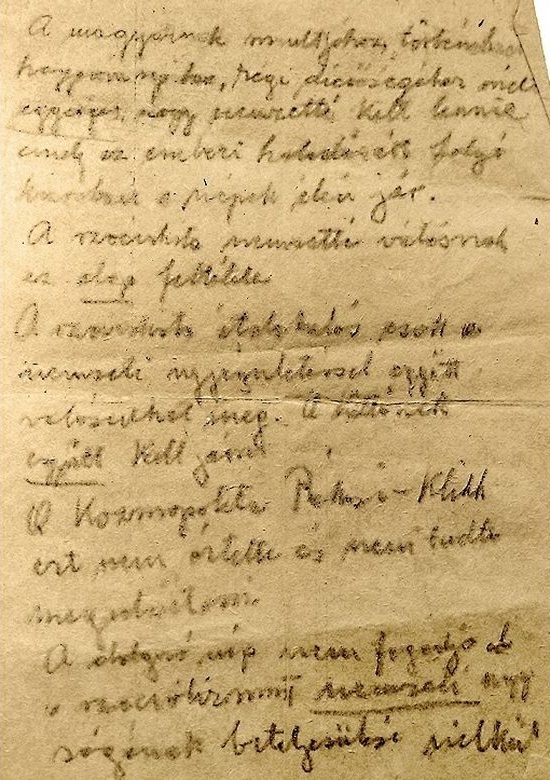 A magyarnak multjához, történelmi
hagyományához, régi dicsőségéhez méltó
egységes, nagy nemzetté kell lennie
amely az emberi haladásért folyó
küzdelmek a népek élén jár.
A szocialista nemzetté válásnak
ez alap feltétele
A szocialista átalakulás csak a
nemzeti ujjászületéssel együtt
valósulhat meg. A kettőnek
együtt kell járni
A Kozmopolita Rákosi-Klikk
ezt nem értette és nem tudta
megvalósítani.
A dolgozó nép nem fogadja el
a szocializmust nemzeti nagy
ságának beteljesülése nélkül